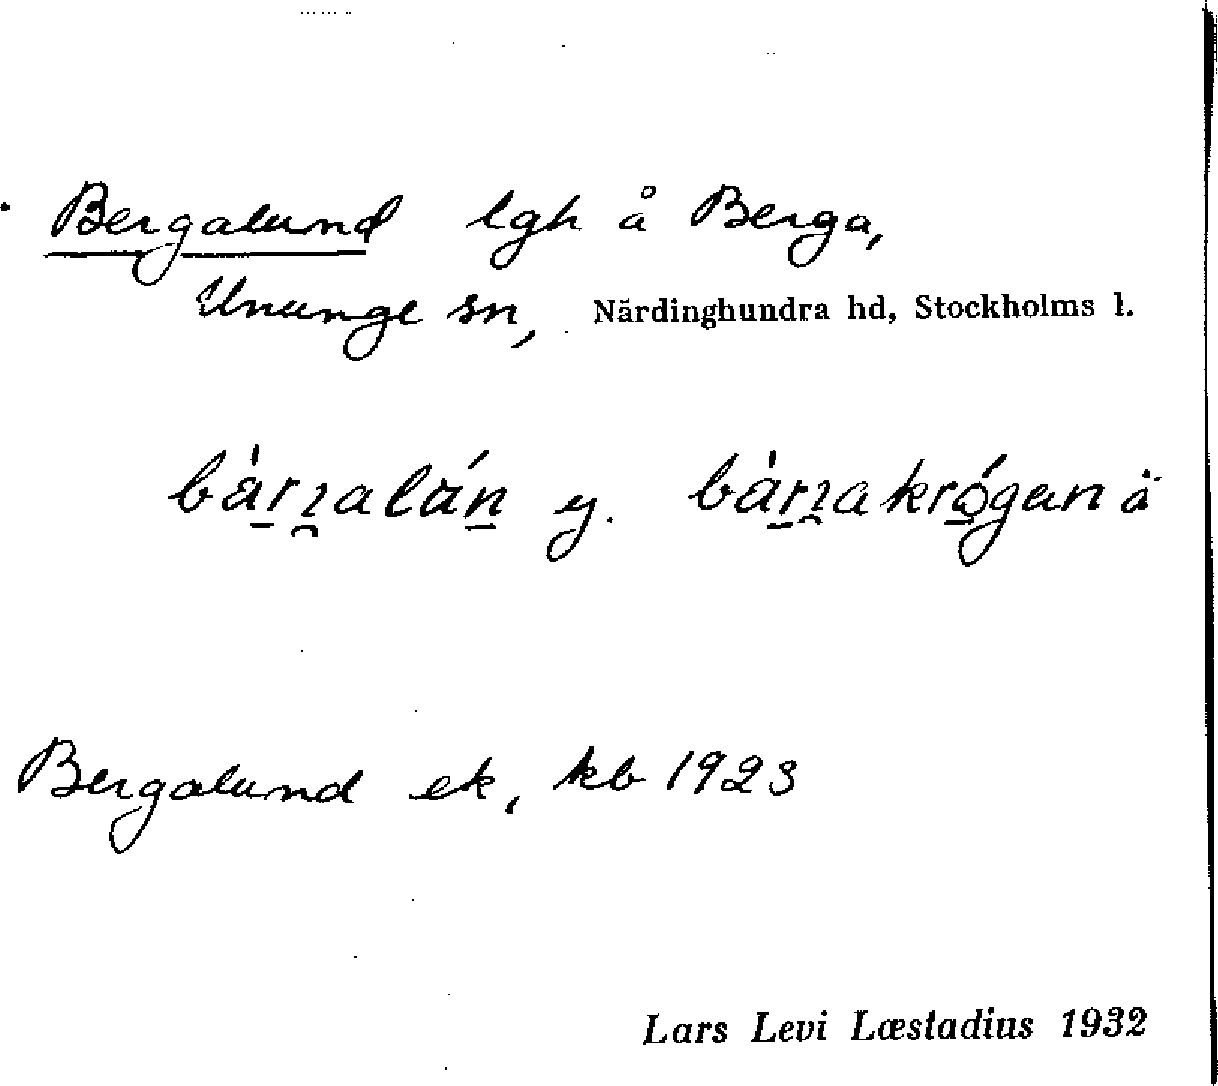 Bergalund lgh å Berga,
Ununge sn, Närdinghundra hd, Stockholms l.
y. ä
Bergalund ek, kb 1923
Lars Levi Læstadius 1932